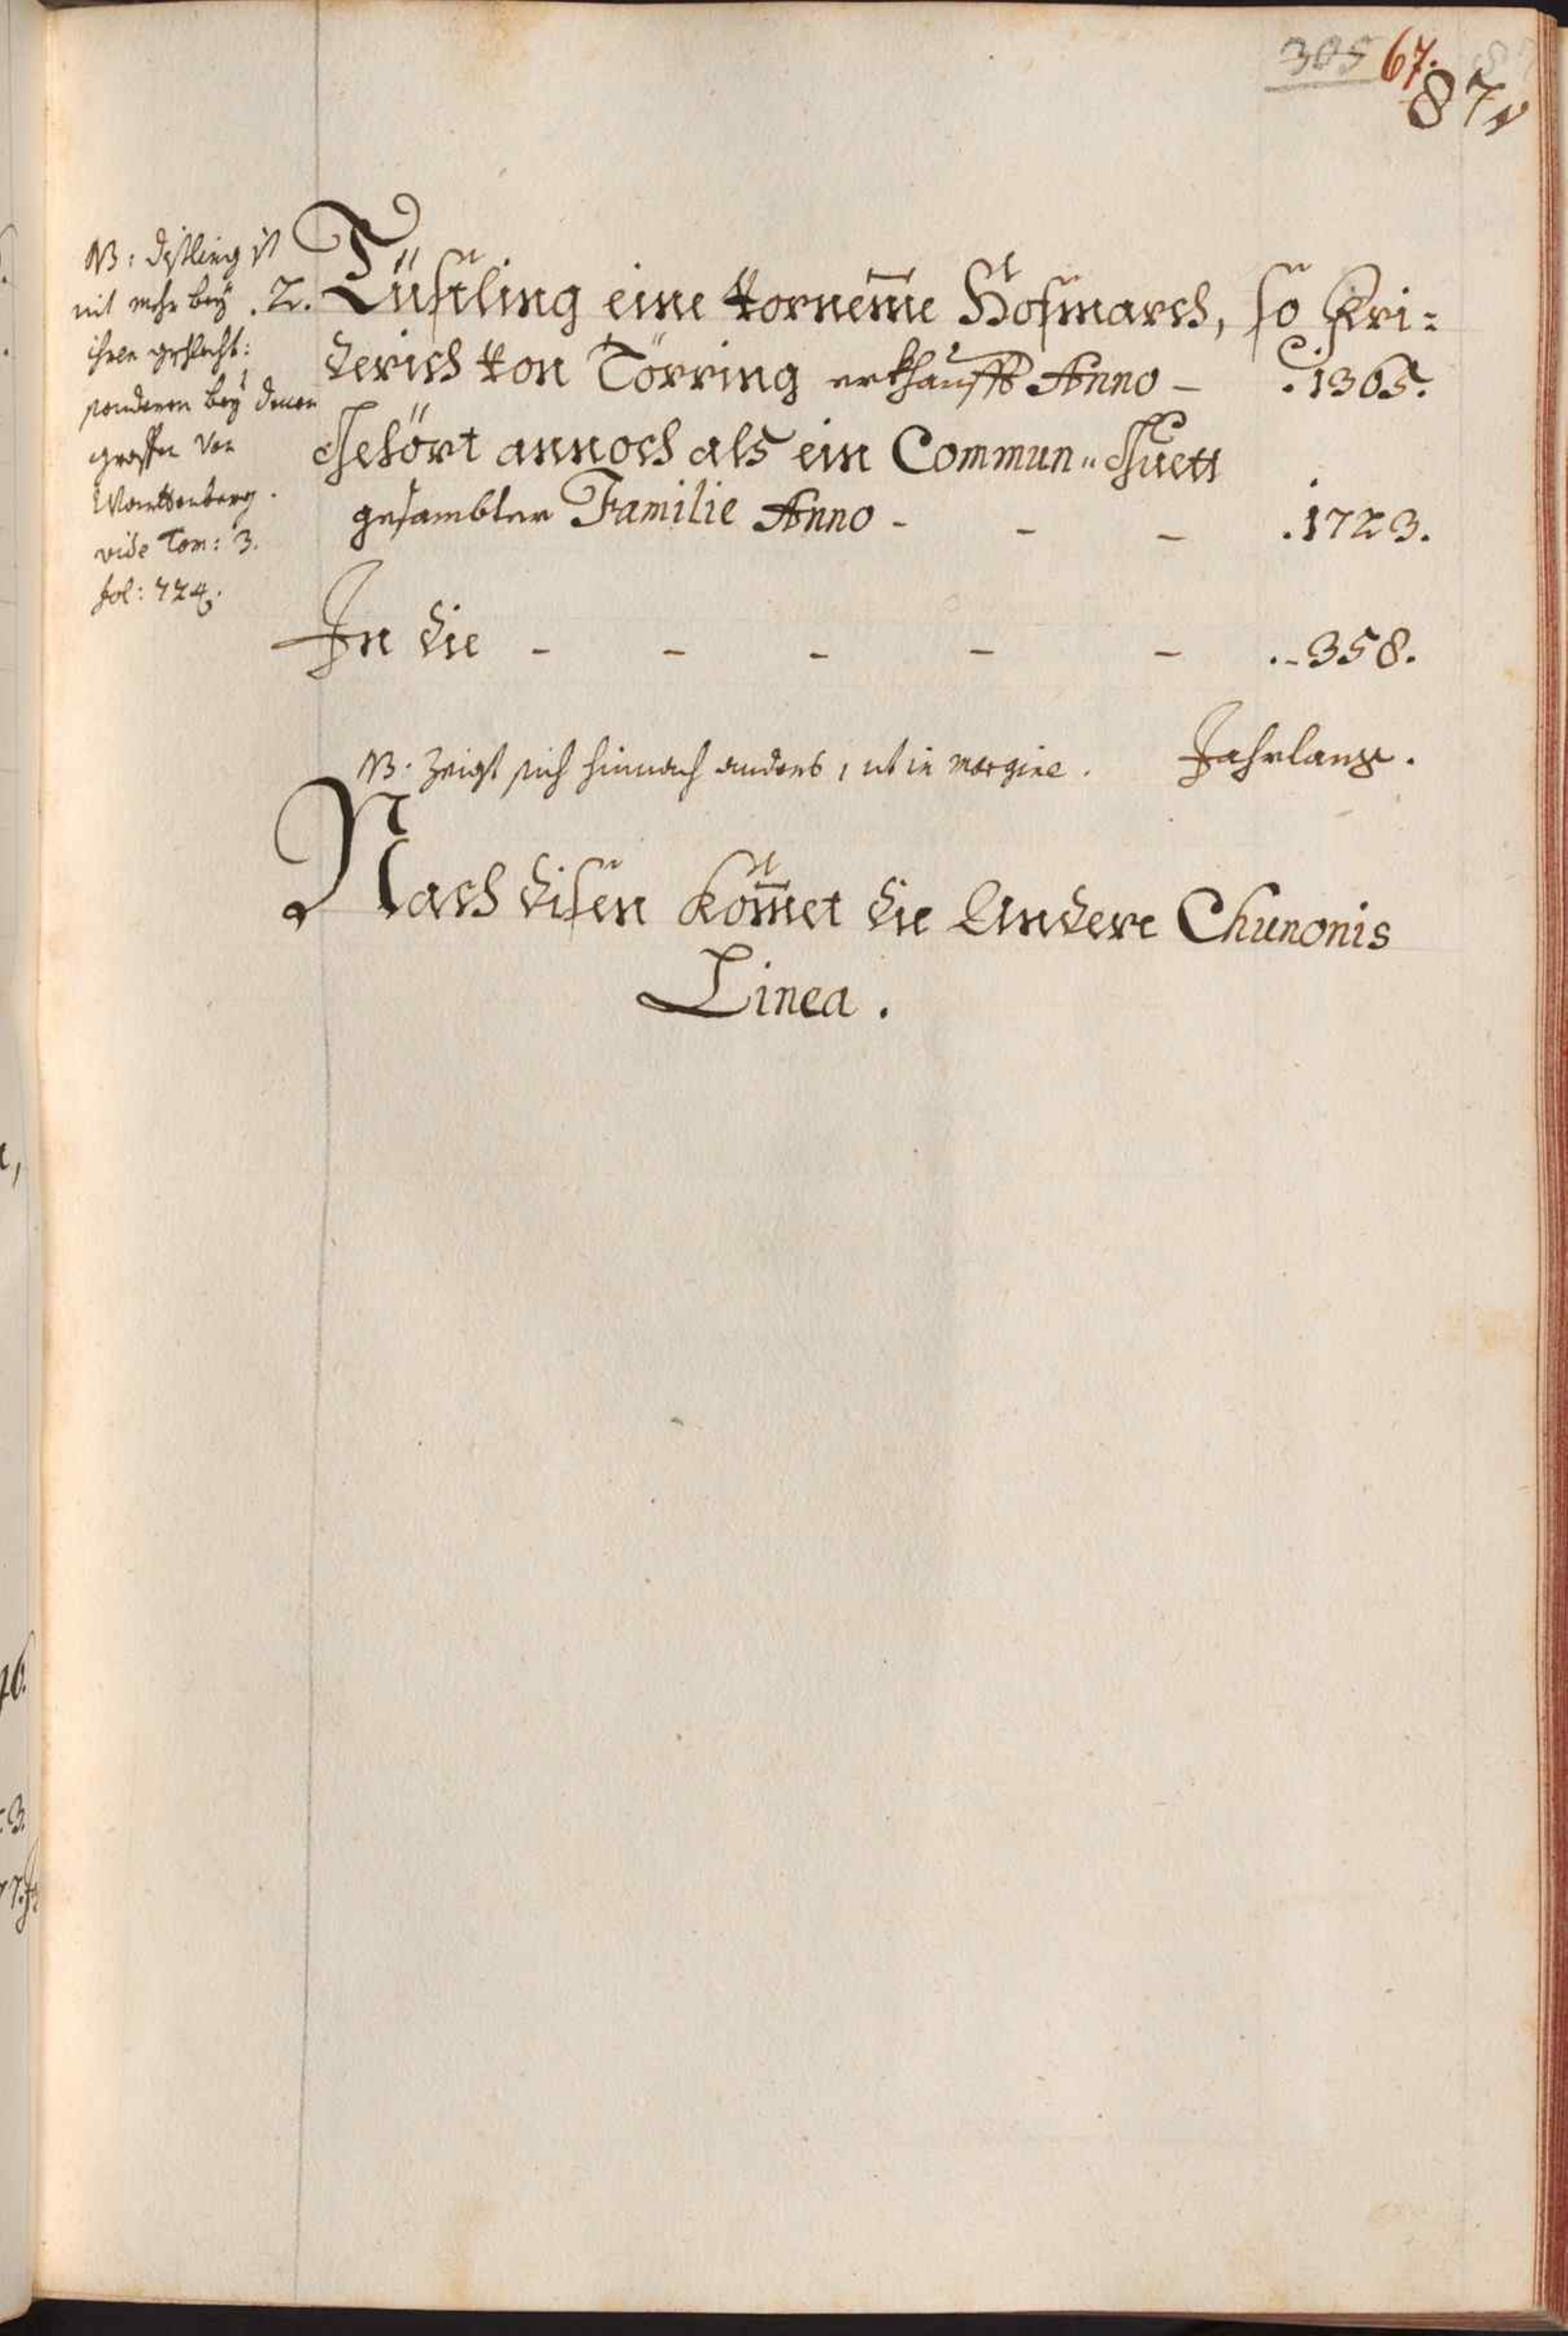 305 67.
87
NB: Distling ist
nit mehr bey
ihrem geschlecht:
sonderen bey denen
graffen von
Warttenberg.
vide Tom: 3.
fol: 724.
.2. Tüsstling eine vorneme Hofmarch, so Fri=
derich von Törring erkhaufft Anno – .1365.
Gehört annoch als ein Commun„Guett
gesambter Familie Anno – – – .1723.
In die – – – – – ..358.
Jahrlang.
NB. Zeigt sich hinnach anders, ut in margine.
Nach disen kom̄et die Andere Chunonis
Linea.